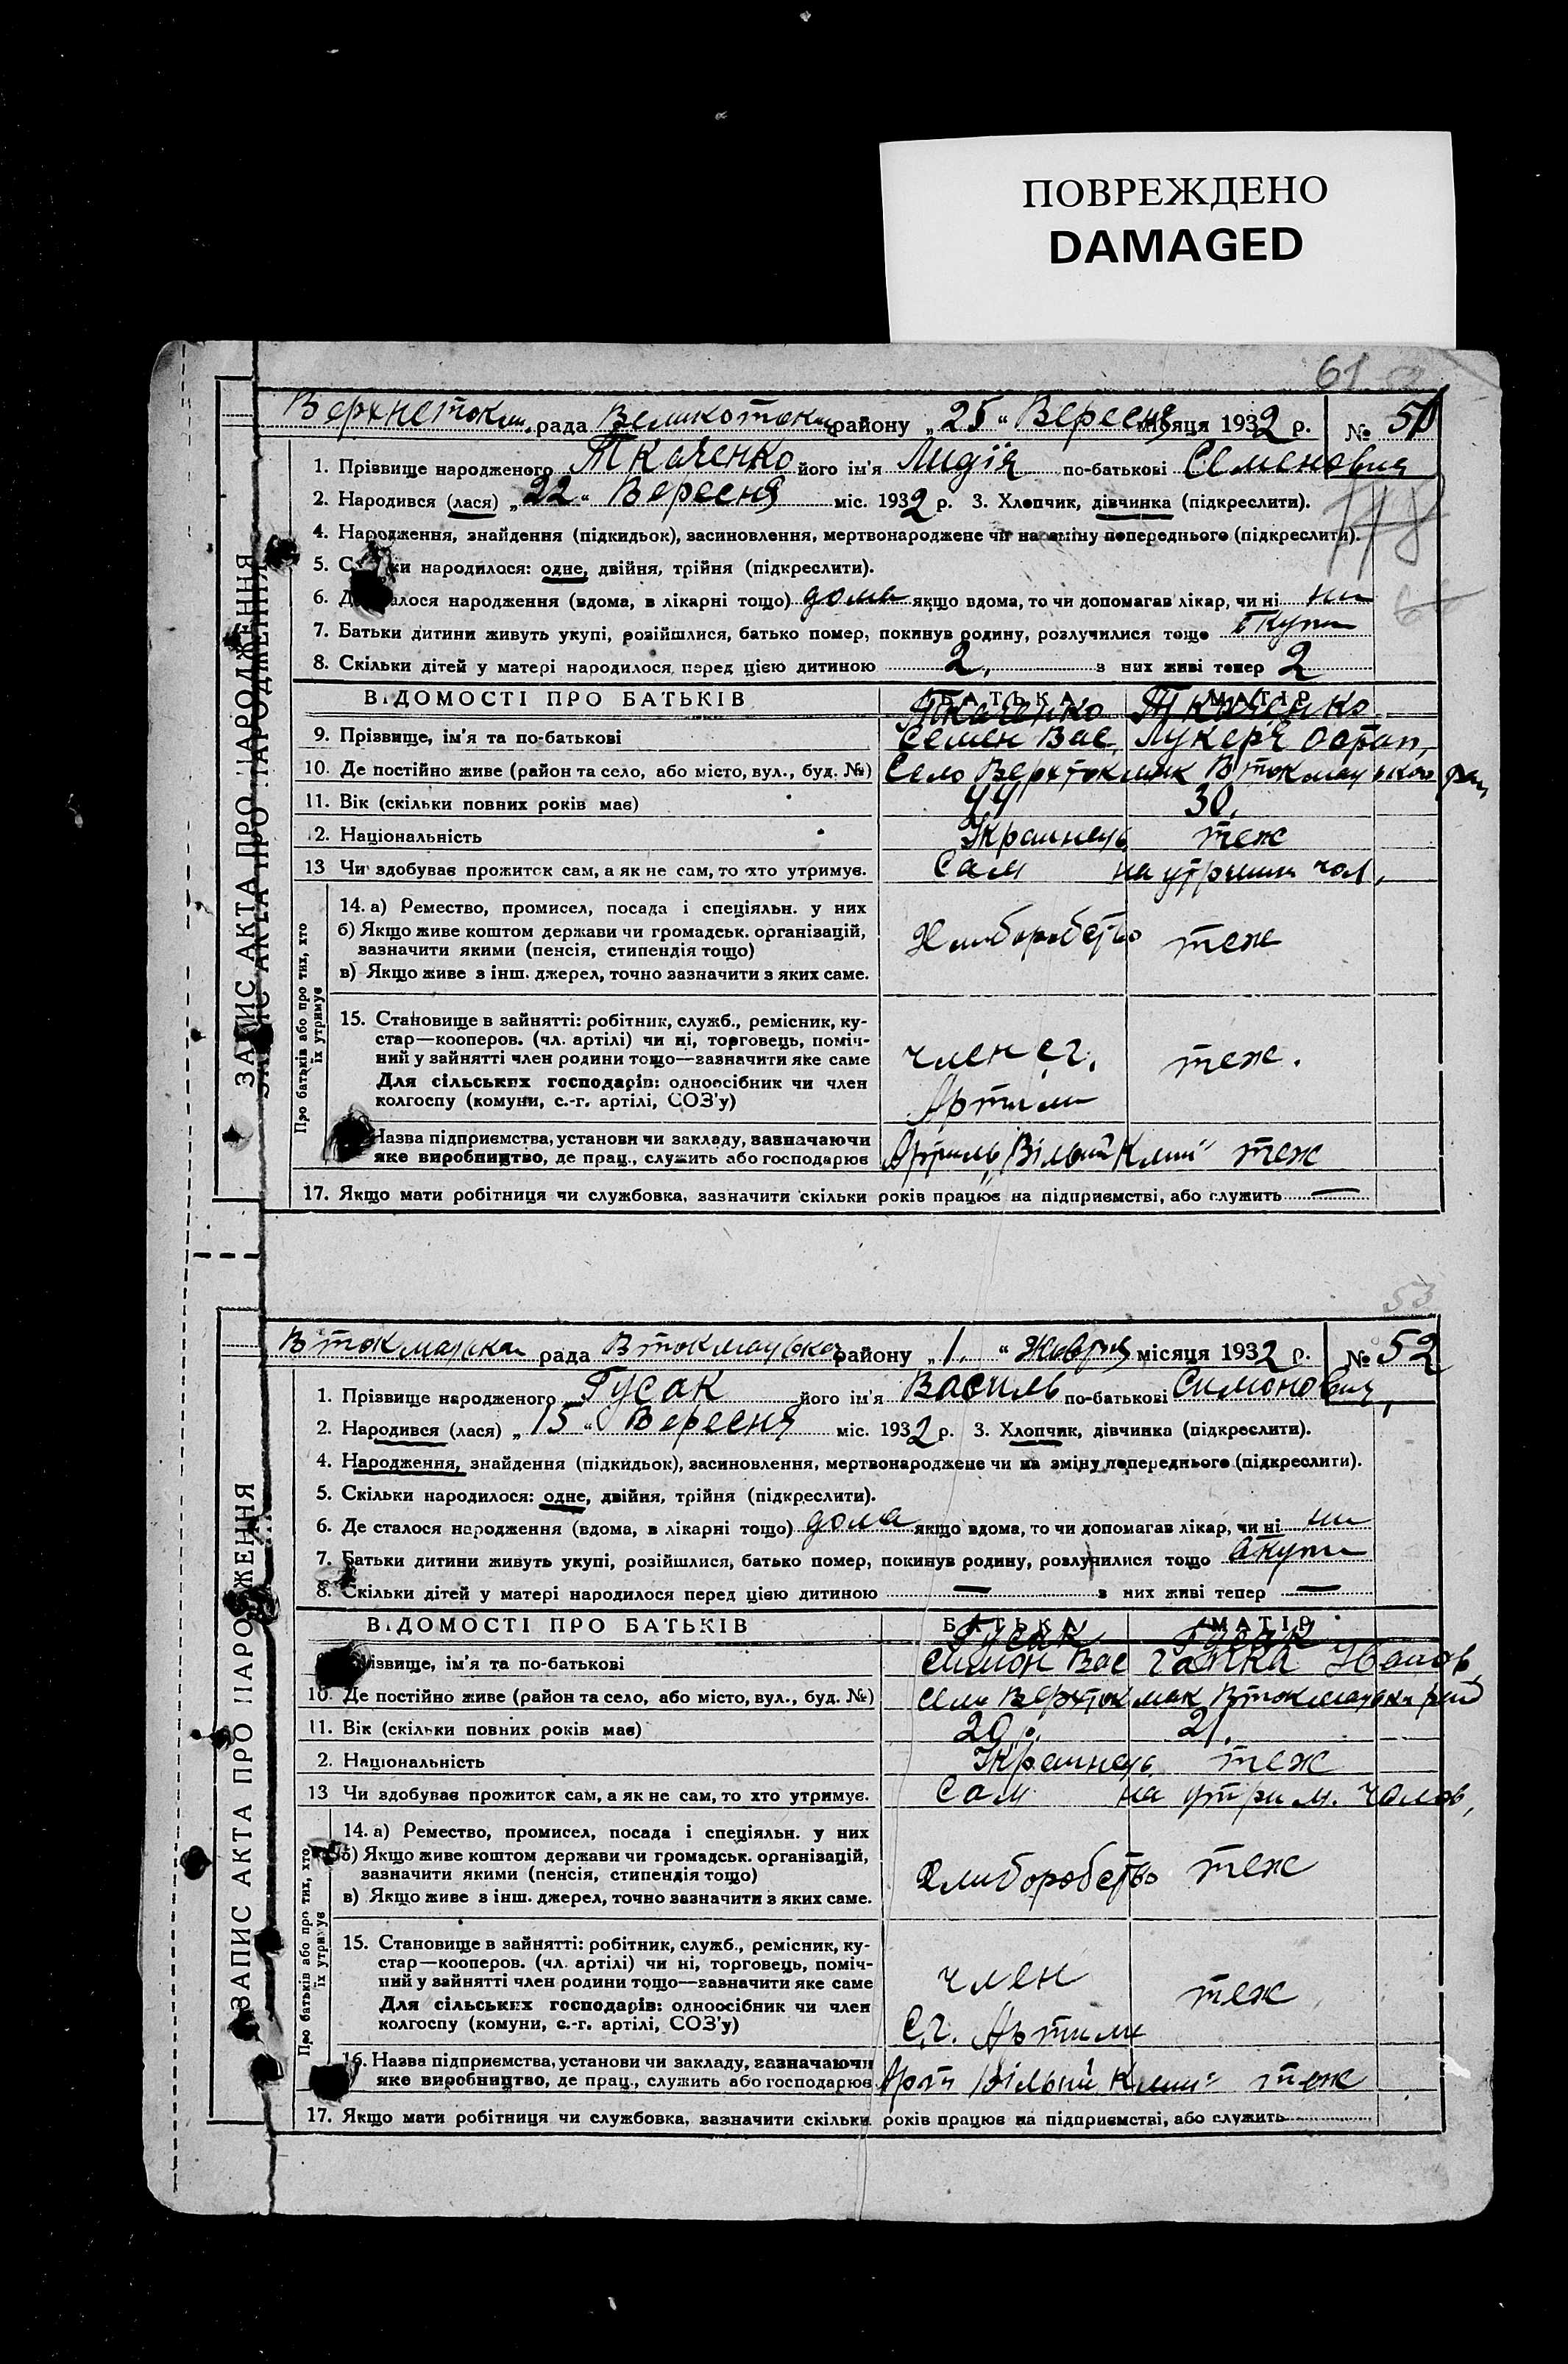 ПОВРЕЖДЕНО
DAMAGED
61
Верхнеток рада Великоток району „25“ Вересня місяця 1932 р. № 51
1. Прізвище народженого Ткаченко його ім'я Лидія по-батькові Семеновна
2. Народився (лася) „22“ Вересня міс. 1932 р. 3. Хлопчик, дівчинка (підкреслити).
4. Народження, знайдення (підкидьок), засиновлення, мертвонароджене чи на зміну попереднього (підкреслити).
5. народилося: одне, двійня, трійня (підкреслити).
6. народження (вдома, в лікарні тощо) дома якщо вдома, то чи допомагав лікар, чи ні ни
7. Батьки дитини живуть укупі, розійшлися, батько помер, покинув родину, розлучилися тощо вкупи
8. Скільки дітей у матері народилося перед цією дитиною 2. з них живі тепер 2
ВІДОМОСТІ ПРО БАТЬКІВ БАТЬКА МАТІР
Ткаченко Ткаченко
9. Прізвище, ім'я та по-батькові Семен Вас. Лукеря Остап.
10. Де постійно живе (район та село, або місто, вул., буд. №) Село Верхтокмак Втокмацького рай
11. Вік (скільки повних років має) 44 30.
12. Національність Украинець теж
13 Чи здобуває прожиток сам, а як не сам, то хто утримує. Сам на утримин чол.
14. а) Ремество, промисел, посада і спеціяльн. у них
б) Якщо живе коштом держави чи громадськ. організацій,
зазначити якими (пенсія, стипендія тощо) Хлиборобство теж
в) Якщо живе з інш. джерел, точно зазначити з яких саме.
15. Становище в зайнятті: робітник, служб., ремісник, ку-
стар—кооперов. (чл. артілі) чи ні, торговець, поміч-
ний у зайнятті член родини тощо—зазначити яке саме член с.г. теж.
Для сільських господарів: одноосібник чи член
колгоспу (комуни, с.-г. артілі, СОЗ'у) Артили
Назва підприємства, установи чи закладу, зазначаючи
яке виробництво, де прац., служить або господарює Артиль „Вільний Клич“ теж
17. Якщо мати робітниця чи службовка, зазначити скільки років працює на підприємстві, або служить —
ЗАПИС АКТА ПРО НАРОДЖЕННЯ
Про батьків або про тих, хто
їх утримує
53
Втокмацька рада Втокмацького району „1.“ Жовтня місяця 1932 р. № 52
1. Прізвище народженого Гусак його ім'я Василь по-батькові Симонович
2. Народився (лася) „15“ Вересня міс. 1932 р. 3. Хлопчик, дівчинка (підкреслити).
4. Народження, знайдення (підкидьок), засиновлення, мертвонароджене чи на зміну попереднього (підкреслити).
5. Скільки народилося: одне, двійня, трійня (підкреслити).
6. Де сталося народження (вдома, в лікарні тощо) дома якщо вдома, то чи допомагав лікар, чи ні ни
7. Батьки дитини живуть укупі, розійшлися, батько помер, покинув родину, розлучилися тощо вкупи
8. Скільки дітей у матері народилося перед цією дитиною — з них живі тепер —
ВІДОМОСТІ ПРО БАТЬКІВ БАТЬКА МАТІР
Гусак Гусак
Прізвище, ім'я та по-батькові Симон Вас Ганка Иванов.
10. Де постійно живе (район та село, або місто, вул., буд. №) село Верхтокмак Втокмацьки рай
11. Вік (скільки повних років має) 20 р. 21.
2. Національність Украинець теж
13 Чи здобуває прожиток сам, а як не сам, то хто утримує. Сам на утрим. Чолов,
14. а) Ремество, промисел, посада і спеціяльн. у них
б) Якщо живе коштом держави чи громадськ. організацій,
зазначити якими (пенсія, стипендія тощо) Хлиборобство теж
в) Якщо живе з інш. джерел, точно зазначити з яких саме.
15. Становище в зайнятті: робітник, служб., ремісник, ку-
стар—кооперов. (чл. артілі) чи ні, торговець, поміч-
ний у зайнятті член родини тощо—зазначити яке саме член теж
Для сільських господарів: одноосібник чи член
колгоспу (комуни, с.-г. артілі, СОЗ'у) С.г. Артили
16. Назва підприємства, установи чи закладу, зазначаючи
яке виробництво, де прац., служить або господарює Арт. Вільний Клич“ теж
17. Якщо мати робітниця чи службовка, зазначити скільки років працює на підприємстві, або служить
ЗАПИС АКТА ПРО НАРОДЖЕННЯ
Про батьків або про тих, хто
їх утримує